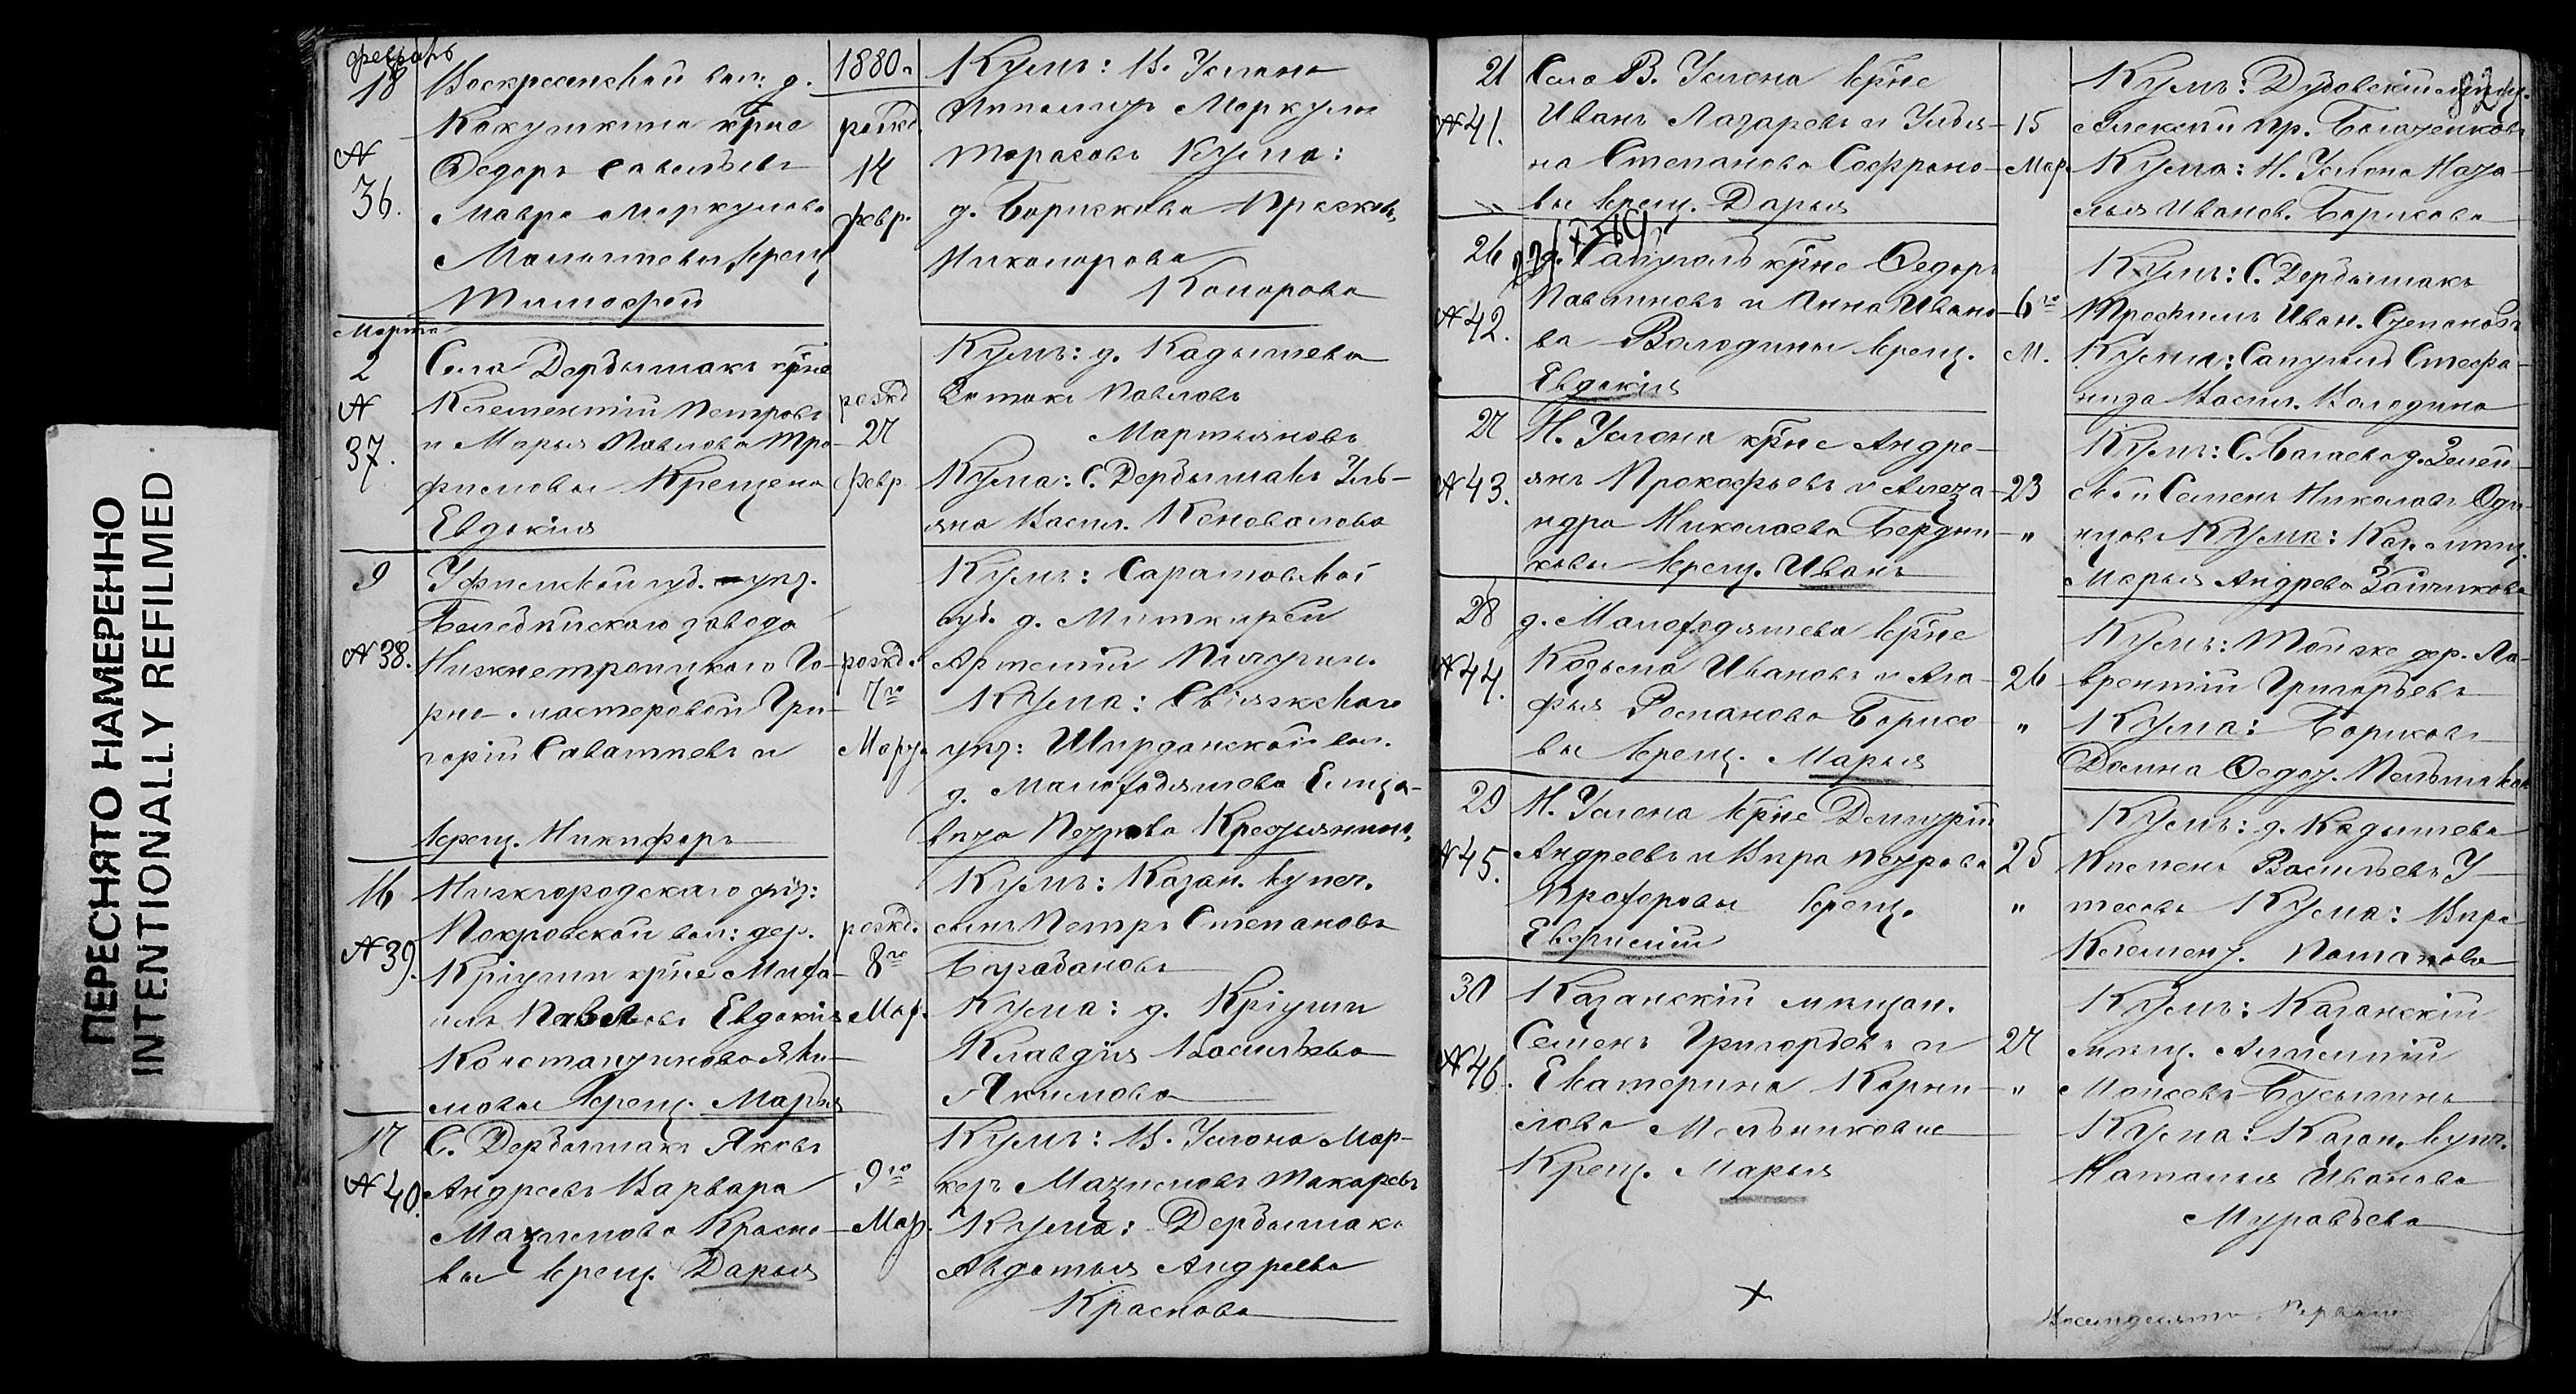 ПЕРЕСНЯТО НАМЕРЕННО
INTENTIONALLY REFILMED
февраль
18
N
36.
Воскресенской вол: д.
Кокушкина кр̃не
Федоръ Савельевъ
Мавра Меркулова
крещ
Тимофей
1880 г
рожд.
14
февр.
Кумъ: В. Услона
Меркул
Тарасовъ Кума:
д. Борисково Просков.
Никонорова
Комарова
Марта
2
N
37.
Села Дербышакъ кр̃не
Клементий Петровъ
и Марья Павлова Тро-
фимовы Крещена
Евдокия
рожд
27
февр
Кумъ: д. Кадышева
Павловъ
Мартьяновъ
Кума: С. Дербышакъ Уль-
яна Васил. Коновалова
9
N 38.
Уфимской губ. уѣз.
Белебейскаго завода
Нижнетроицкаго Го-
рно-мастеровой Гри-
горій Саватеевъ и
крещ. Никифоръ
рожд.
7го
Мар.
Кумъ: Саратовской
губ. д.
Артемій Пичугин.
Кума: Свіяжскаго
уѣз: Ширданской вол.
д. Малоходяшева Елиза-
вета Петрова
16
N 39.
Нижегородскаго уѣз:
Покровской вол: дер.
Кріуши кр̃не Миха-
илъ Павловъ Евдокия
Константинова Яки-
мовы крещ. Марья
рожд.
8го
Мар.
Кумъ: Казан. купеч.
сынъ Петръ Степановъ
Барабановъ
Кума: д. Кріуши
Клавдія Васильева
Якимова
17
N 40.
С. Дербышакъ Яковъ
Андреевъ Варвара
Махимова Красно-
вы крещ. Дарья
9го
Мар.
Кумъ: В. Услона Мар-
Махимовъ Макаровъ
Кума: Дербышакъ
Авдотья Андреева
Краснова
82
21
N 41.
Села В. Услона кр̃не
Иванъ Лазаревъ и Улья-
на Степанова Софроно-
вы крещ. Дарья
15
Мар.
Кумъ:
Алексѣй Пр.
Кума: Н. Услона Ната-
лья Иванов. Борисова
26
N 42.
кр̃не Федоръ
и Анна Ивано-
ва Володины крещ.
Евдокия
6го
М.
Кумъ: С. Дербышакъ
Трофимъ Иван. Степановъ
Кума: Стефа-
нида Васил. Володина
27
N 43.
Н. Услона кр̃не Андре-
янъ Прокофьевъ и Алекса-
ндра Николаева Бердни-
ковы крещ. Иванъ
23
"
Кумъ: С.
Семенъ Николаевъ Оди-
нцовъ Кума: Каз. мѣщ.
Марья Андреева Зайчикова
28
N 44.
д. Малоходяшева кр̃не
Козьма Ивановъ и Ага-
фья Романова Борисо-
вы крещ. Марья
26
"
Кумъ: Тойже дер. Ла-
врентій Григорьевъ
Кума: Борисковъ
Домна Федот.
29
N 45.
Н. Услона кр̃не Дмитрій
Андреевъ и Вѣра Петрова
Прохоровы Крещ.
Евфимій
25
"
Кумъ: д. Кадышева
Пименъ Васильевъ У-
тесовъ Кума: Вѣра
Клемент. Потапова
30
N 46.
Казанскій мѣщан.
Семенъ Григорьевъ и
Екатерина Корни-
лова Мельниковы
Крещ. Марья
27
"
Кумъ: Казанскій
мѣщ.
Моисеевъ Бусыгинъ
Кума: Казан. купч.
Наталья Иванова
Муравьева